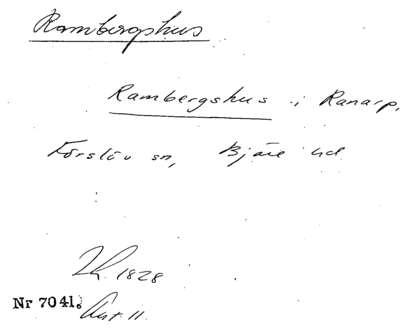 Rambergshus
Rambergshus i Ranarp,
Förslöv sn, Bjäre hd
1828
Nr 7041. Art. 11.